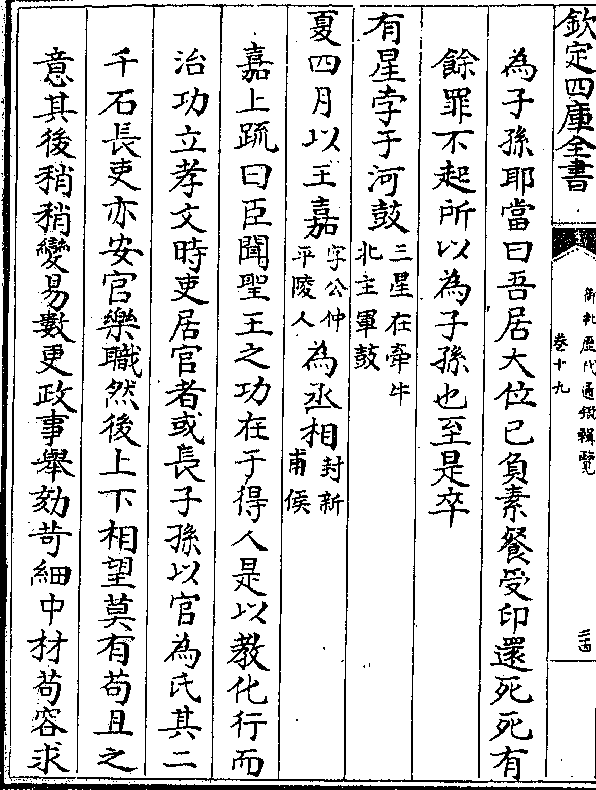 欽定四庫全書
御批歷代通鑑輯覽
卷十九
三四
為子孫耶當曰吾居大位已負素餐受印還死死有
餘罪不起所以為子孫也至是卒
有星孛于河鼓三星在牽牛北主軍鼓
夏四月以王嘉字公仲平陵人為丞相封新甫侯
嘉上疏曰臣聞聖王之功在于得人是以教化行而
治功立孝文時吏居官者或長子孫以官為氏其二
千石長吏亦安官樂職然後上下相望莫有苟且之
意其後稍稍變易數更政事舉劾苛細中材苟容求